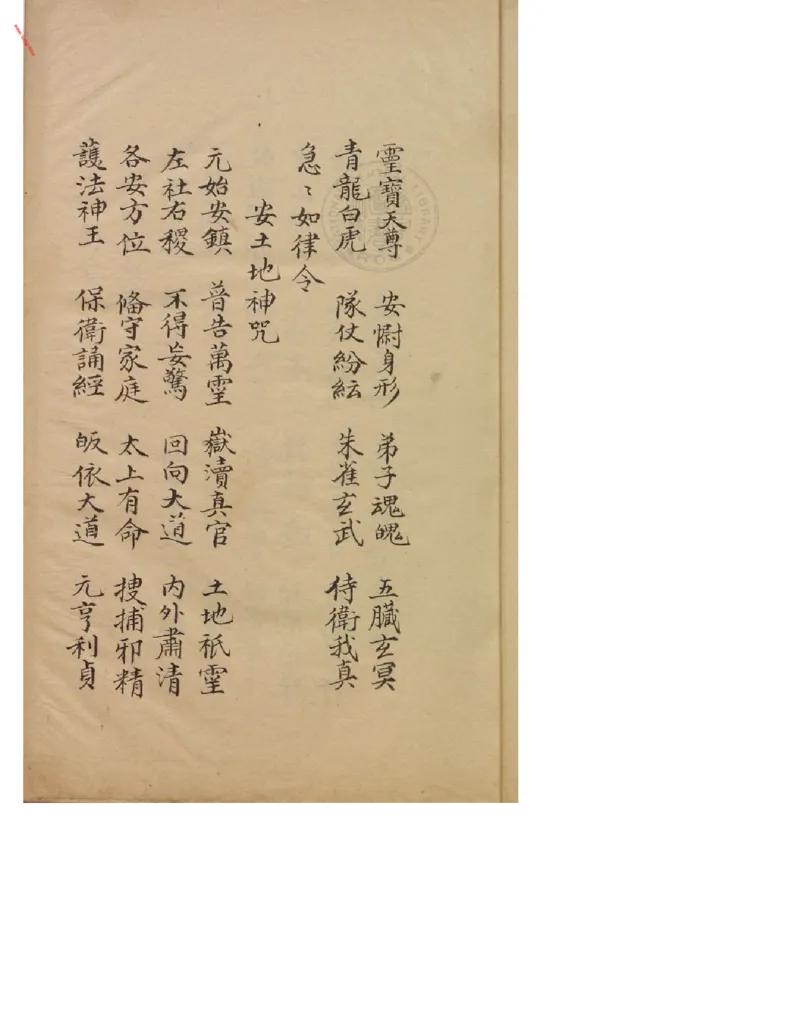 靈寶天尊 安慰身形 弟子魂魄 五臟玄冥
青龍白虎 隊仗紛紜 朱雀玄武 侍衛我真
急〻如律令
安土地神咒
元始安鎮 普告萬靈 嶽瀆真官 土地祇靈
左社右稷 不得妄驚 回向大道 內外肅清
各安方位 俻守家庭 太上有命 搜捕邪精
護法神王 保衛誦經 皈依大道 元亨利貞
LIBRARY